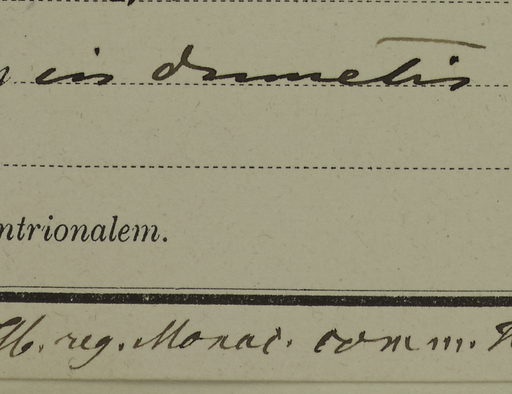 in dumetis
ntrionalem.
Hb. reg. Monac. comm.